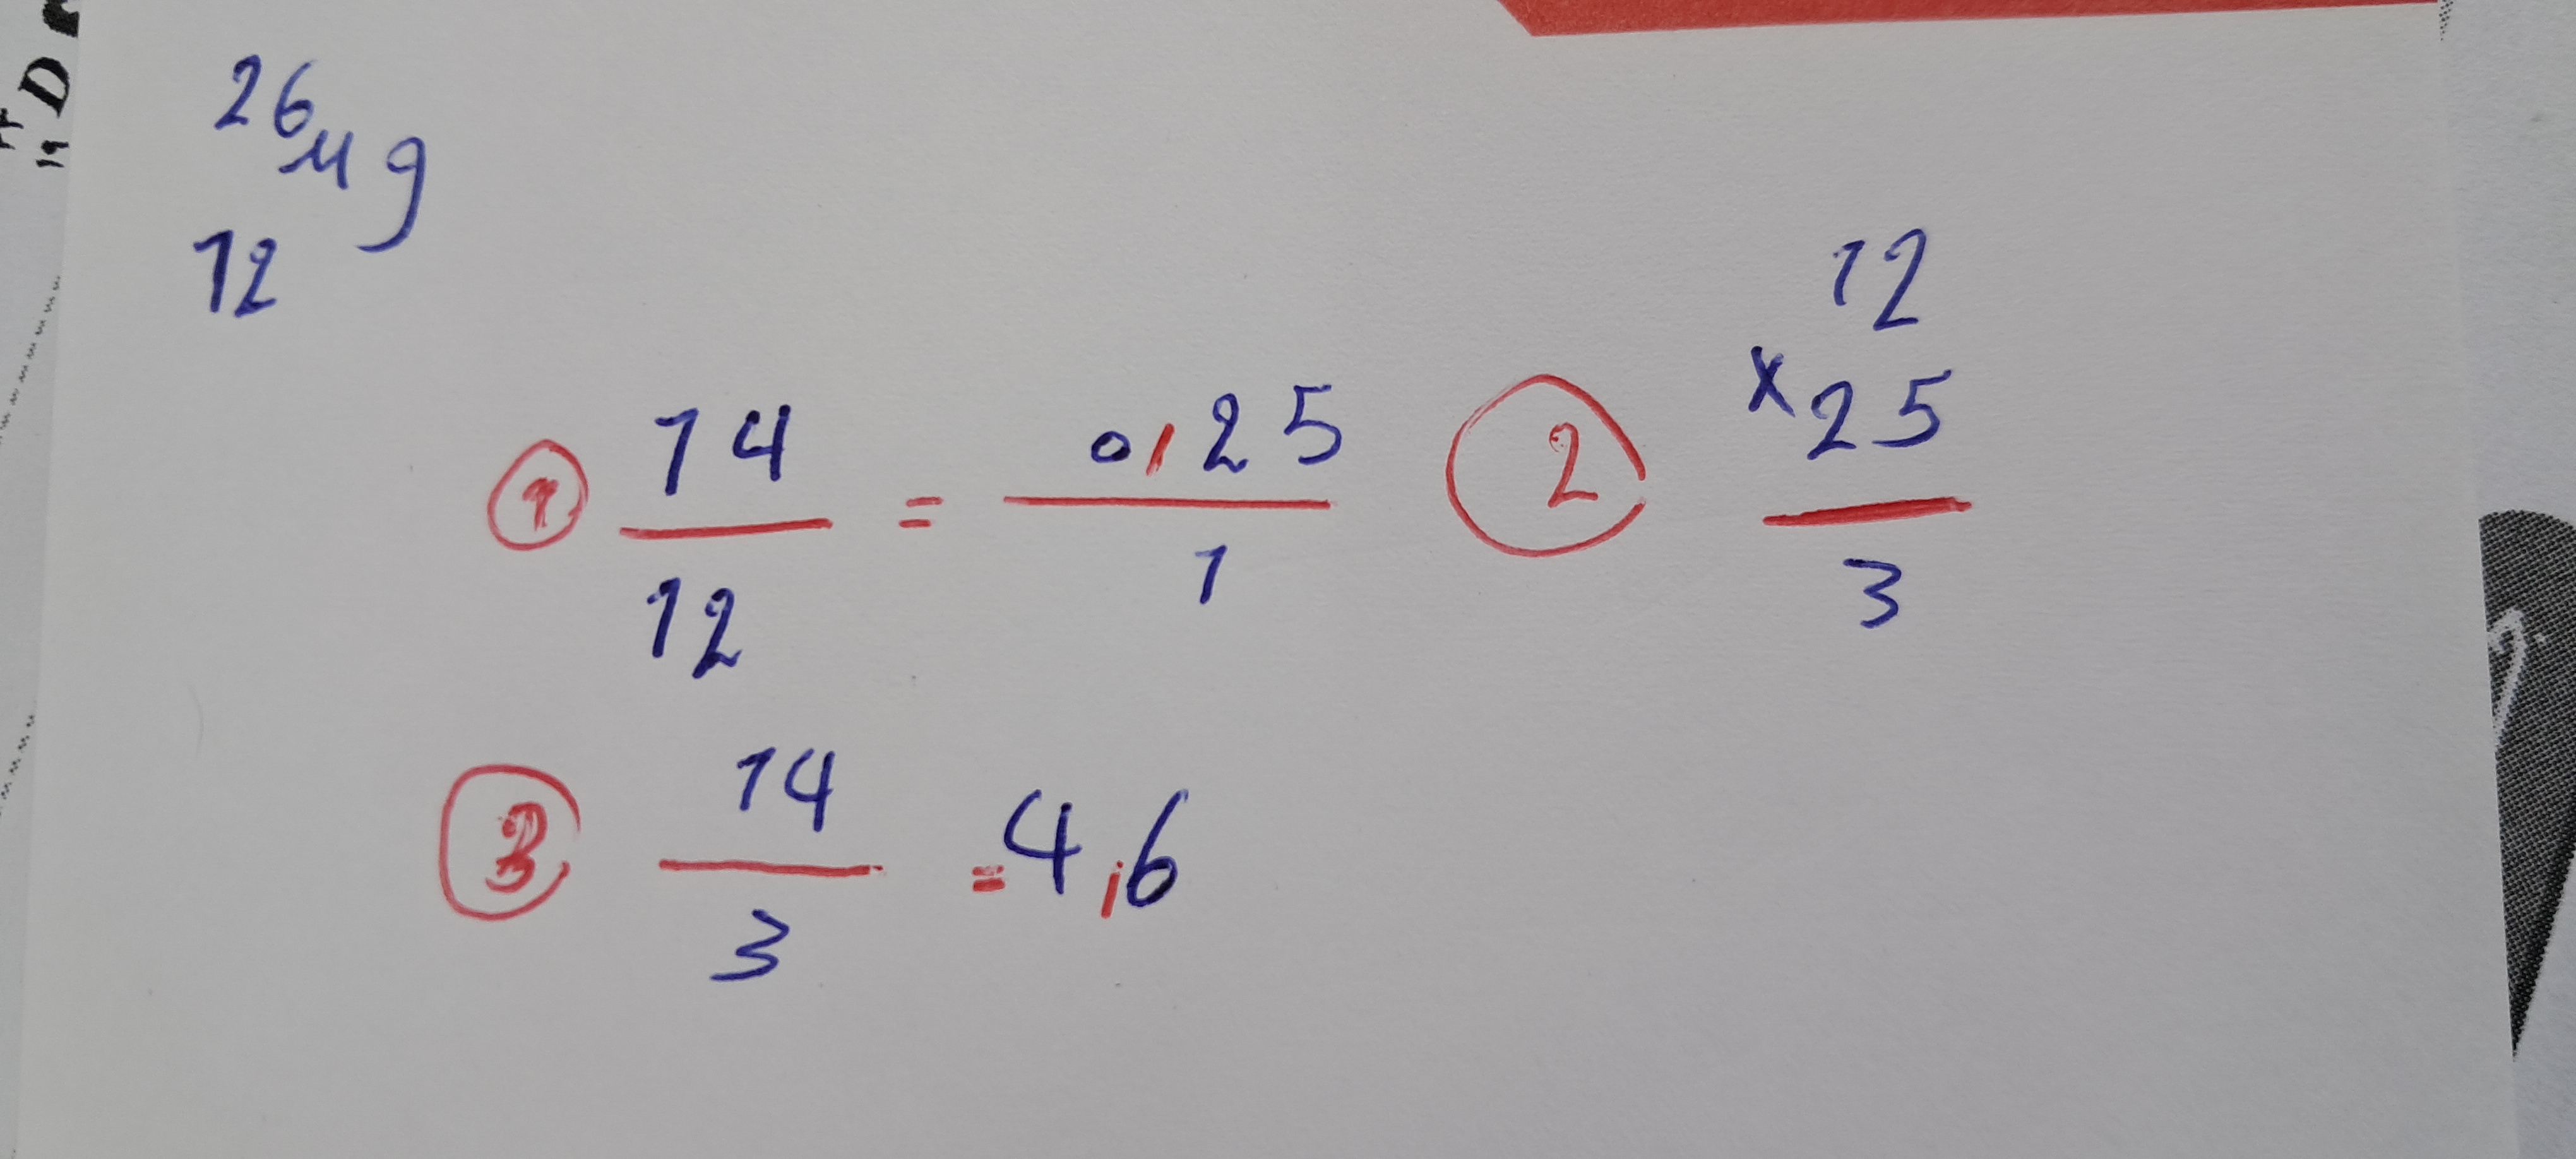 26 Mg
12
① 14/12 = 0,25/1
② 12 × 25 / 3
③ 14/3 = 4,6
D